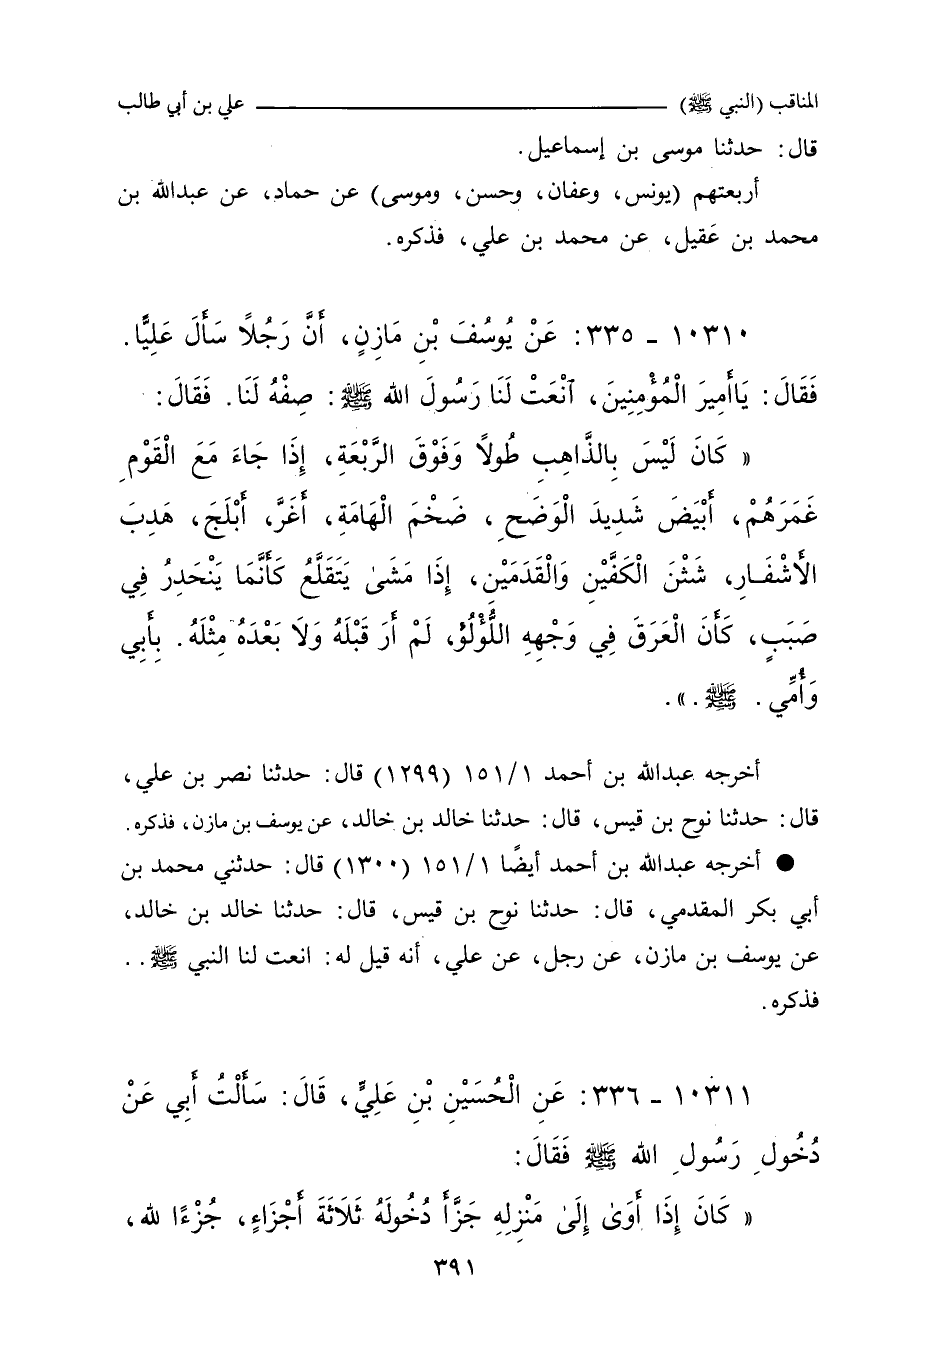 المناقب (النبي ﷺ) ــــــــــــــــ علي بن أبي طالب
قال: حدثنا موسى بن إسماعيل.
أربعتهم (يونس، وعفان، وحسن، وموسى) عن حماد، عن عبدالله بن
محمد بن عَقيل، عن محمد بن علي، فذكره.
١٠٣١٠ - ٣٣٥: عَنْ يُوسُفَ بْنِ مَازِنٍ، أَنَّ رَجُلًا سَأَلَ عَلِيًّا.
فَقَالَ: يَاأَمِيرَ الْمُؤْمِنِينَ، ٱنْعَتْ لَنَا رَسُولَ الله ﷺ: صِفْهُ لَنَا. فَقَالَ:
« كَانَ لَيْسَ بِالذَّاهِبِ طُولًا وَفَوْقَ الرَّبْعَةِ، إِذَا جَاءَ مَعَ الْقَوْمِ
غَمَرَهُمْ، أَبْيَضَ شَدِيدَ الْوَضَحِ، ضَخْمَ الْهَامَةِ، أَغَرَّ، أَبْلَجَ، هَدِبَ
الأَشْفَارِ، شَثْنَ الْكَفَّيْنِ وَالْقَدَمَيْنِ، إِذَا مَشَىٰ يَتَقَلَّعُ كَأَنَّمَا يَنْحَدِرُ فِي
صَبَبٍ، كَأَنَ الْعَرَقَ فِي وَجْهِهِ اللُّؤْلُؤُ، لَمْ أَرَ قَبْلَهُ وَلَا بَعْدَهُ مِثْلَهُ. بِأَبِي
وَأُمِّي. ﷺ.».
أخرجه عبدالله بن أحمد ١/١٥١ (١٢٩٩) قال: حدثنا نصر بن علي،
قال: حدثنا نوح بن قيس، قال: حدثنا خالد بن خالد، عن يوسف بن مازن، فذكره.
● أخرجه عبدالله بن أحمد أيضًا ١/١٥١ (١٣٠٠) قال: حدثني محمد بن
أبي بكر المقدمي، قال: حدثنا نوح بن قيس، قال: حدثنا خالد بن خالد،
عن يوسف بن مازن، عن رجل، عن علي، أنه قيل له: انعت لنا النبي ﷺ..
فذكره.
١٠٣١١ - ٣٣٦: عَنِ الْحُسَيْنِ بْنِ عَلِيٍّ، قَالَ: سَأَلْتُ أَبِي عَنْ
دُخُولِ رَسُولِ الله ﷺ فَقَالَ:
« كَانَ إِذَا أَوَىٰ إِلَىٰ مَنْزِلِهِ جَزَّأَ دُخُولَهُ ثَلَاثَةَ أَجْزَاءٍ، جُزْءًا لله،
٣٩١